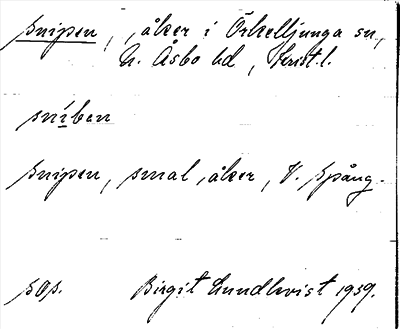 snipen, , åker i Örkelljunga sn,
N. Åsbo hd, Krist.l.
sníben
snipen, smal åker, V. Spång.
sos. Birgit Lundkvist 1939.